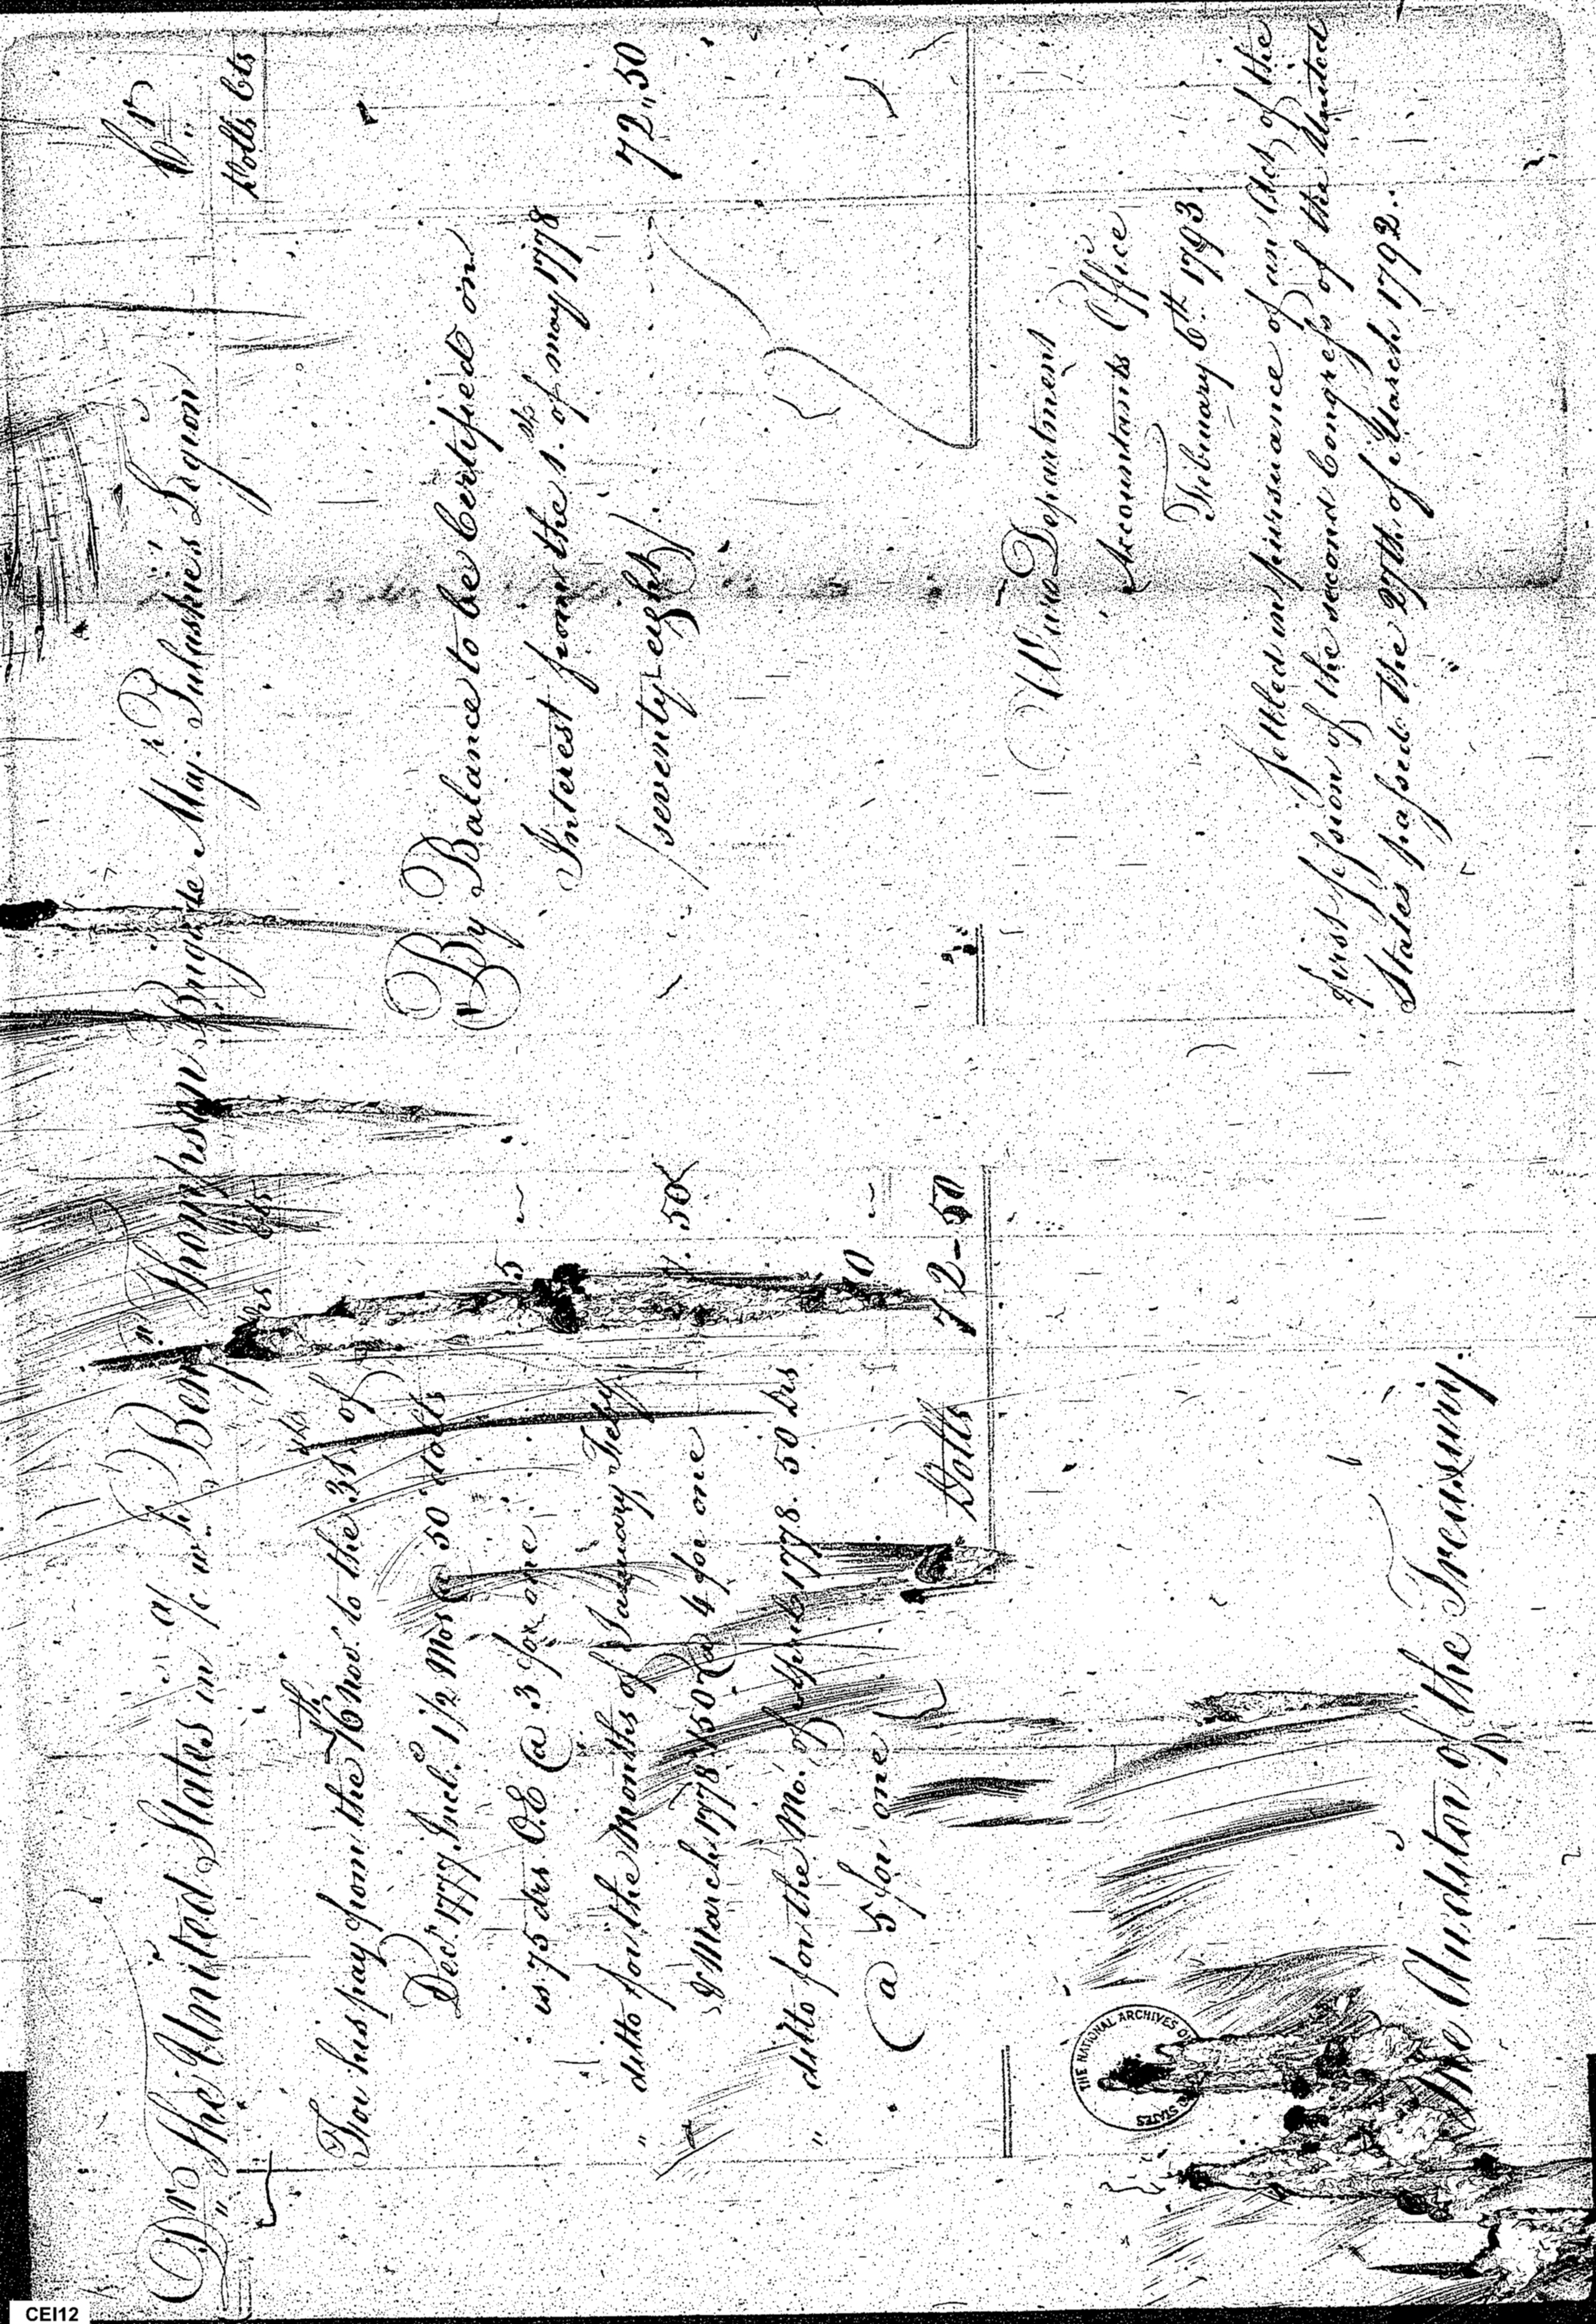 Dr the United States in a/c wh. Benjn Thompson Brigade Majr. Pulaskies Legion Cr
drs cts
Dolls Cts
For his pay from the 16th Nov. to the 31st. of
Decr. 1777. Incle. 1 1/2 Mos @ 50 dolls
is 75 drs O.E @ 3 for one 5 ~
" ditto for the Months of January, Feby.
& March 1778 150 @ 4 for one 50
" ditto for the Mo. of April 1778. 50 drs
@ 5 for one 10 ~
Dolls 72-50
By Balance to be Certified on
Interest from the 1st. of may 1778
/seventy-eight/. 72,,50
War Department
Accountants Office
February 6th. 1793.
Settled in pursuance of an Act of the
first session of the second Congress of the United
States passed the 27th. of March 1792.
The Auditor of the Treasury.
THE NATIONAL ARCHIVES OF
STATES
CEI12